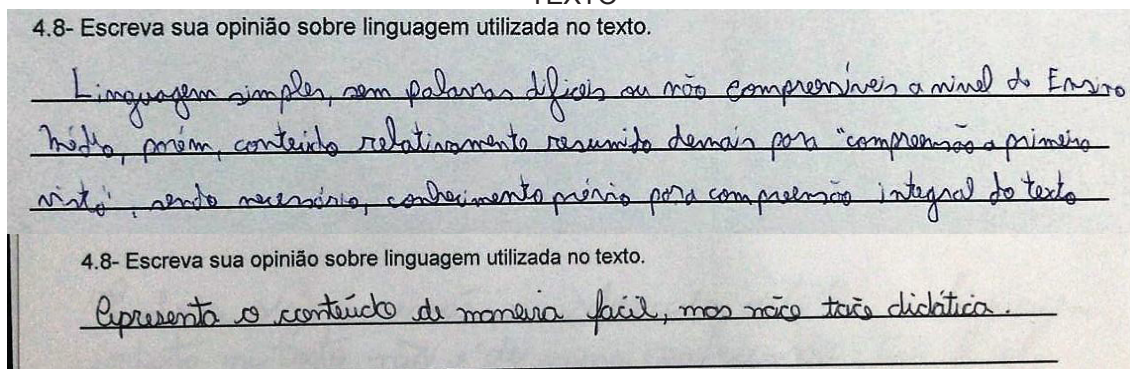 TEXTO
4.8- Escreva sua opinião sobre linguagem utilizada no texto.
Linguagem simples, sem palavras difíceis ou não compreensíveis a nível do Ensino
Médio, porém, conteúdo relativamente resumido demais para "compreensão a primeira
vista", sendo necessário, conhecimento prévio para compreensão integral do texto
4.8- Escreva sua opinião sobre linguagem utilizada no texto.
Apresenta o conteúdo de maneira fácil, mas não tão didática.